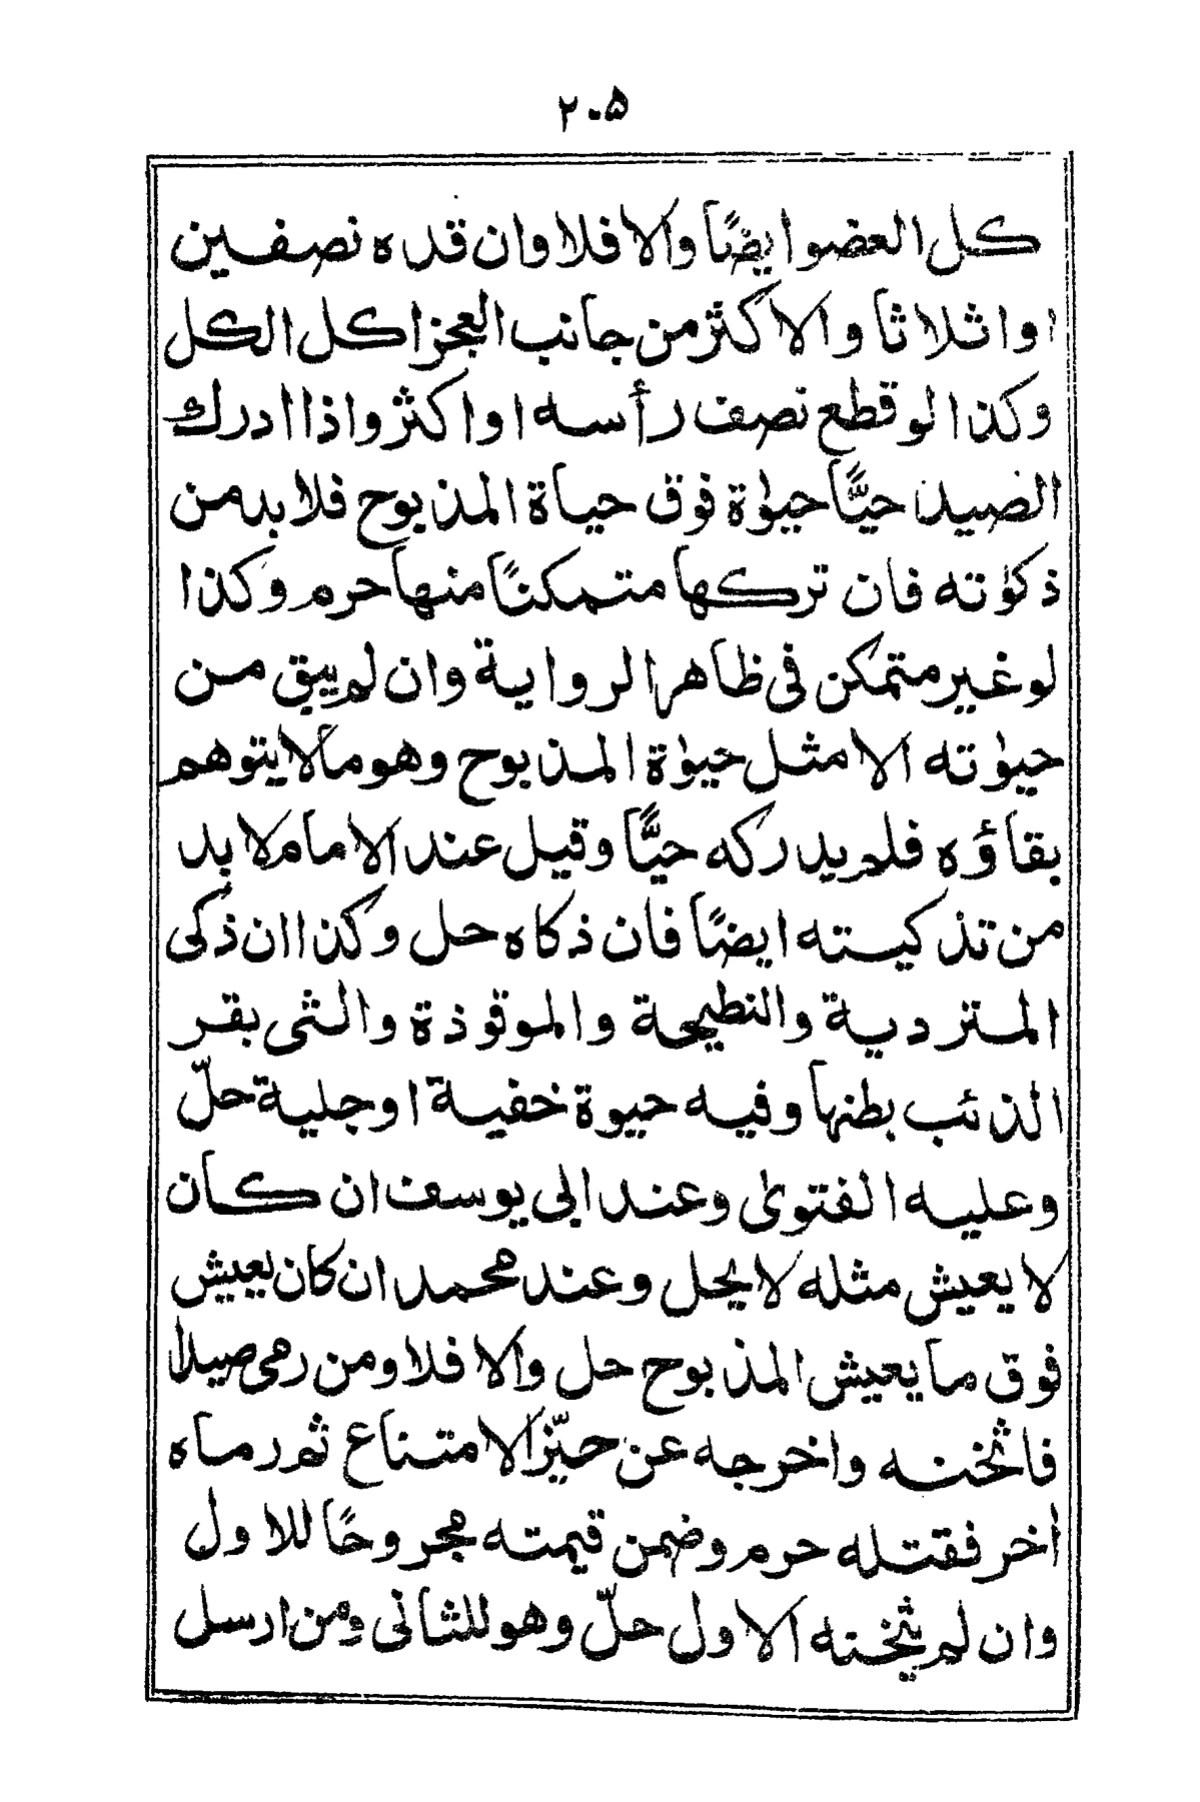 ٢٠۵
كل العضو ايضًا والا فلا وان قده نصفين
او اثلاثا والاكثر من جانب العجز اكل الكل
وكذا لو قطع نصف رأسه او اكثر واذا ادرك
الصيد حيًّا حيٰوة فوق حياة المذبوح فلا بد من
ذكوٰته فان تركها متمكنًا منها حرم وكذا
لو غير متمكن فى ظاهر الرواية وان لم يبق من
حيوٰته الا مثل حيوٰة المذبوح وهو ما لا يتوهم
بقاؤه فلم يدركه حيًّا وقيل عند الامام لا بد
من تذكيته ايضًا فان ذكاه حل وكذا ان ذكى
المتردية والنطيحة والموقوذة والتى بقر
الذئب بطنها وفيه حيوة خفية او جلية حلّ
وعليه الفتوىٰ وعند ابى يوسف ان كان
لا يعيش مثله لا يحل وعند محمد ان كان يعيش
فوق ما يعيش المذبوح حل والا فلا ومن رمى صيدا
فاثخنه واخرجه عن حيّز الامتناع ثم رماه
اخر فقتله حرم وضمن قيمته مجروحًا للاول
وان لم يثخنه الاول حلّ وهو للثانى ومن ارسل